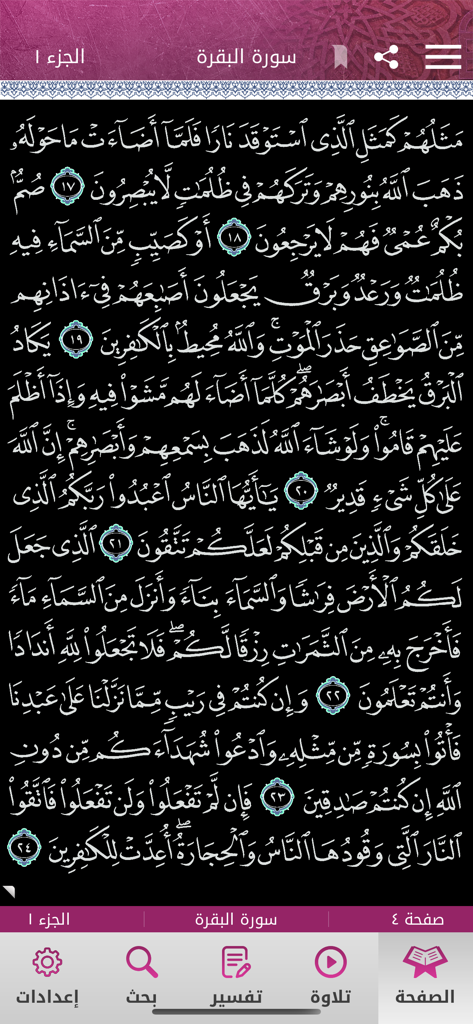 سورة البقرة الجزء ١
مَثَلُهُمْ كَمَثَلِ ٱلَّذِى ٱسْتَوْقَدَ نَارًا فَلَمَّآ أَضَآءَتْ مَا حَوْلَهُۥ
ذَهَبَ ٱللَّهُ بِنُورِهِمْ وَتَرَكَهُمْ فِى ظُلُمَٰتٍ لَّا يُبْصِرُونَ ١٧ صُمٌّۢ
بُكْمٌ عُمْىٌ فَهُمْ لَا يَرْجِعُونَ ١٨ أَوْ كَصَيِّبٍ مِّنَ ٱلسَّمَآءِ فِيهِ
ظُلُمَٰتٌ وَرَعْدٌ وَبَرْقٌ يَجْعَلُونَ أَصَٰبِعَهُمْ فِىٓ ءَاذَانِهِم
مِّنَ ٱلصَّوَٰعِقِ حَذَرَ ٱلْمَوْتِ ۚ وَٱللَّهُ مُحِيطٌۢ بِٱلْكَٰفِرِينَ ١٩ يَكَادُ
ٱلْبَرْقُ يَخْطَفُ أَبْصَٰرَهُمْ ۖ كُلَّمَآ أَضَآءَ لَهُم مَّشَوْا۟ فِيهِ وَإِذَآ أَظْلَمَ
عَلَيْهِمْ قَامُوا۟ ۚ وَلَوْ شَآءَ ٱللَّهُ لَذَهَبَ بِسَمْعِهِمْ وَأَبْصَٰرِهِمْ ۚ إِنَّ ٱللَّهَ
عَلَىٰ كُلِّ شَىْءٍ قَدِيرٌ ٢٠ يَٰٓأَيُّهَا ٱلنَّاسُ ٱعْبُدُوا۟ رَبَّكُمُ ٱلَّذِى
خَلَقَكُمْ وَٱلَّذِينَ مِن قَبْلِكُمْ لَعَلَّكُمْ تَتَّقُونَ ٢١ ٱلَّذِى جَعَلَ
لَكُمُ ٱلْأَرْضَ فِرَٰشًا وَٱلسَّمَآءَ بِنَآءً وَأَنزَلَ مِنَ ٱلسَّمَآءِ مَآءً
فَأَخْرَجَ بِهِۦ مِنَ ٱلثَّمَرَٰتِ رِزْقًا لَّكُمْ ۖ فَلَا تَجْعَلُوا۟ لِلَّهِ أَندَادًا
وَأَنتُمْ تَعْلَمُونَ ٢٢ وَإِن كُنتُمْ فِى رَيْبٍ مِّمَّا نَزَّلْنَا عَلَىٰ عَبْدِنَا
فَأْتُوا۟ بِسُورَةٍ مِّن مِّثْلِهِۦ وَٱدْعُوا۟ شُهَدَآءَكُم مِّن دُونِ
ٱللَّهِ إِن كُنتُمْ صَٰدِقِينَ ٢٣ فَإِن لَّمْ تَفْعَلُوا۟ وَلَن تَفْعَلُوا۟ فَٱتَّقُوا۟
ٱلنَّارَ ٱلَّتِى وَقُودُهَا ٱلنَّاسُ وَٱلْحِجَارَةُ ۖ أُعِدَّتْ لِلْكَٰفِرِينَ ٢٤
صفحة ٤ سورة البقرة الجزء ١
الصفحة تلاوة تفسير بحث إعدادات